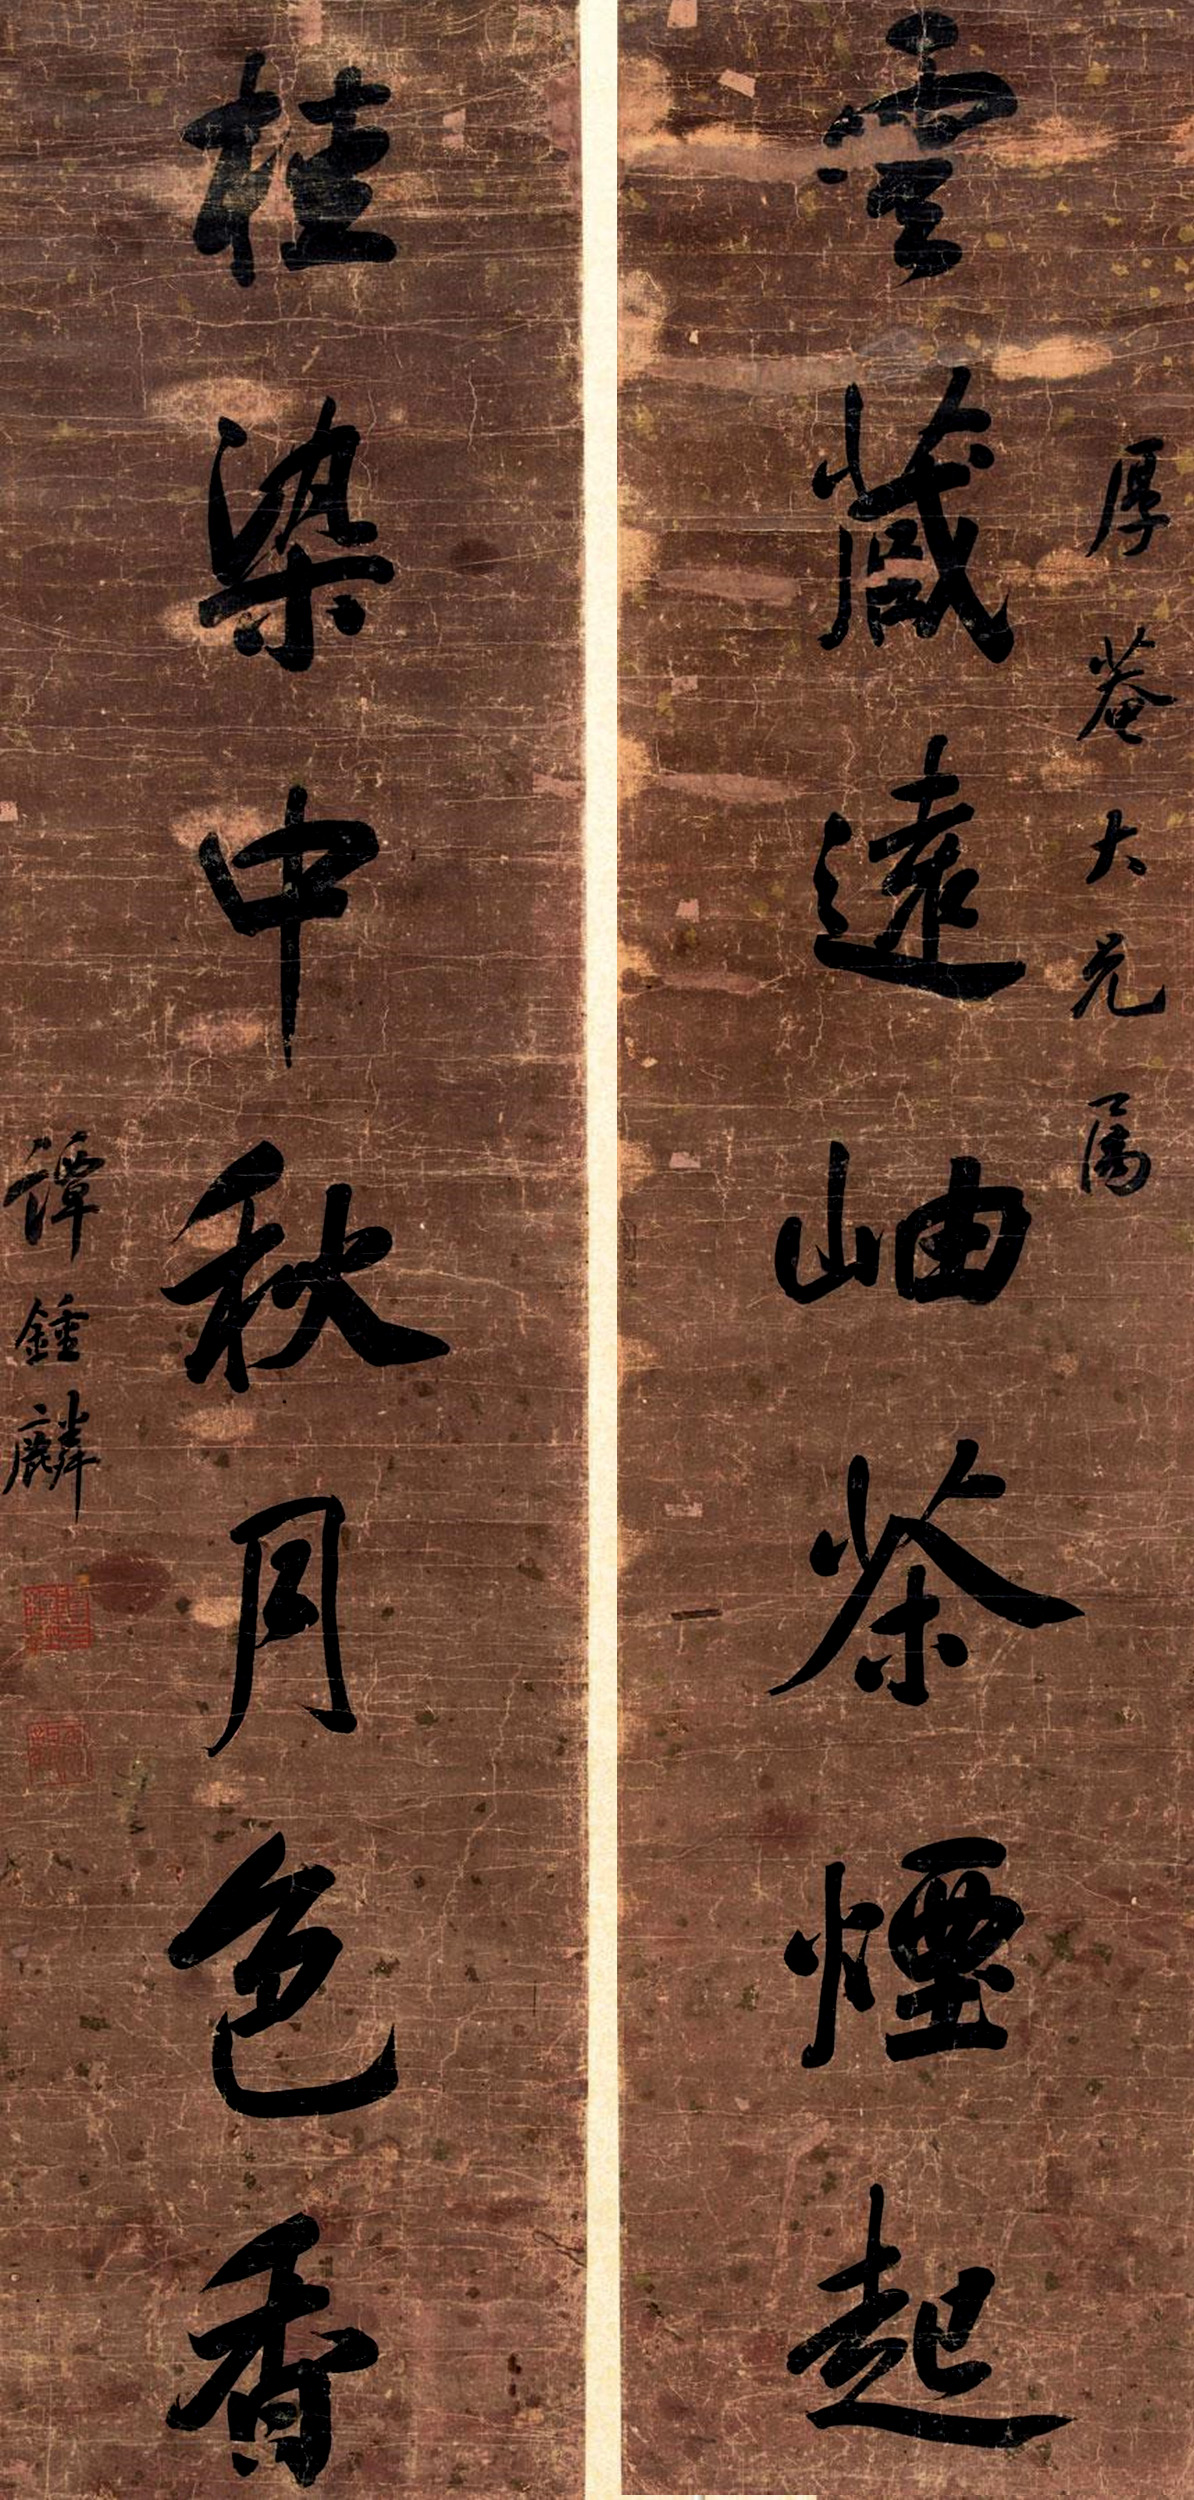 厚菴大兄属
雲藏遠岫茶煙起
桂染中秋月色香
譚鍾麟